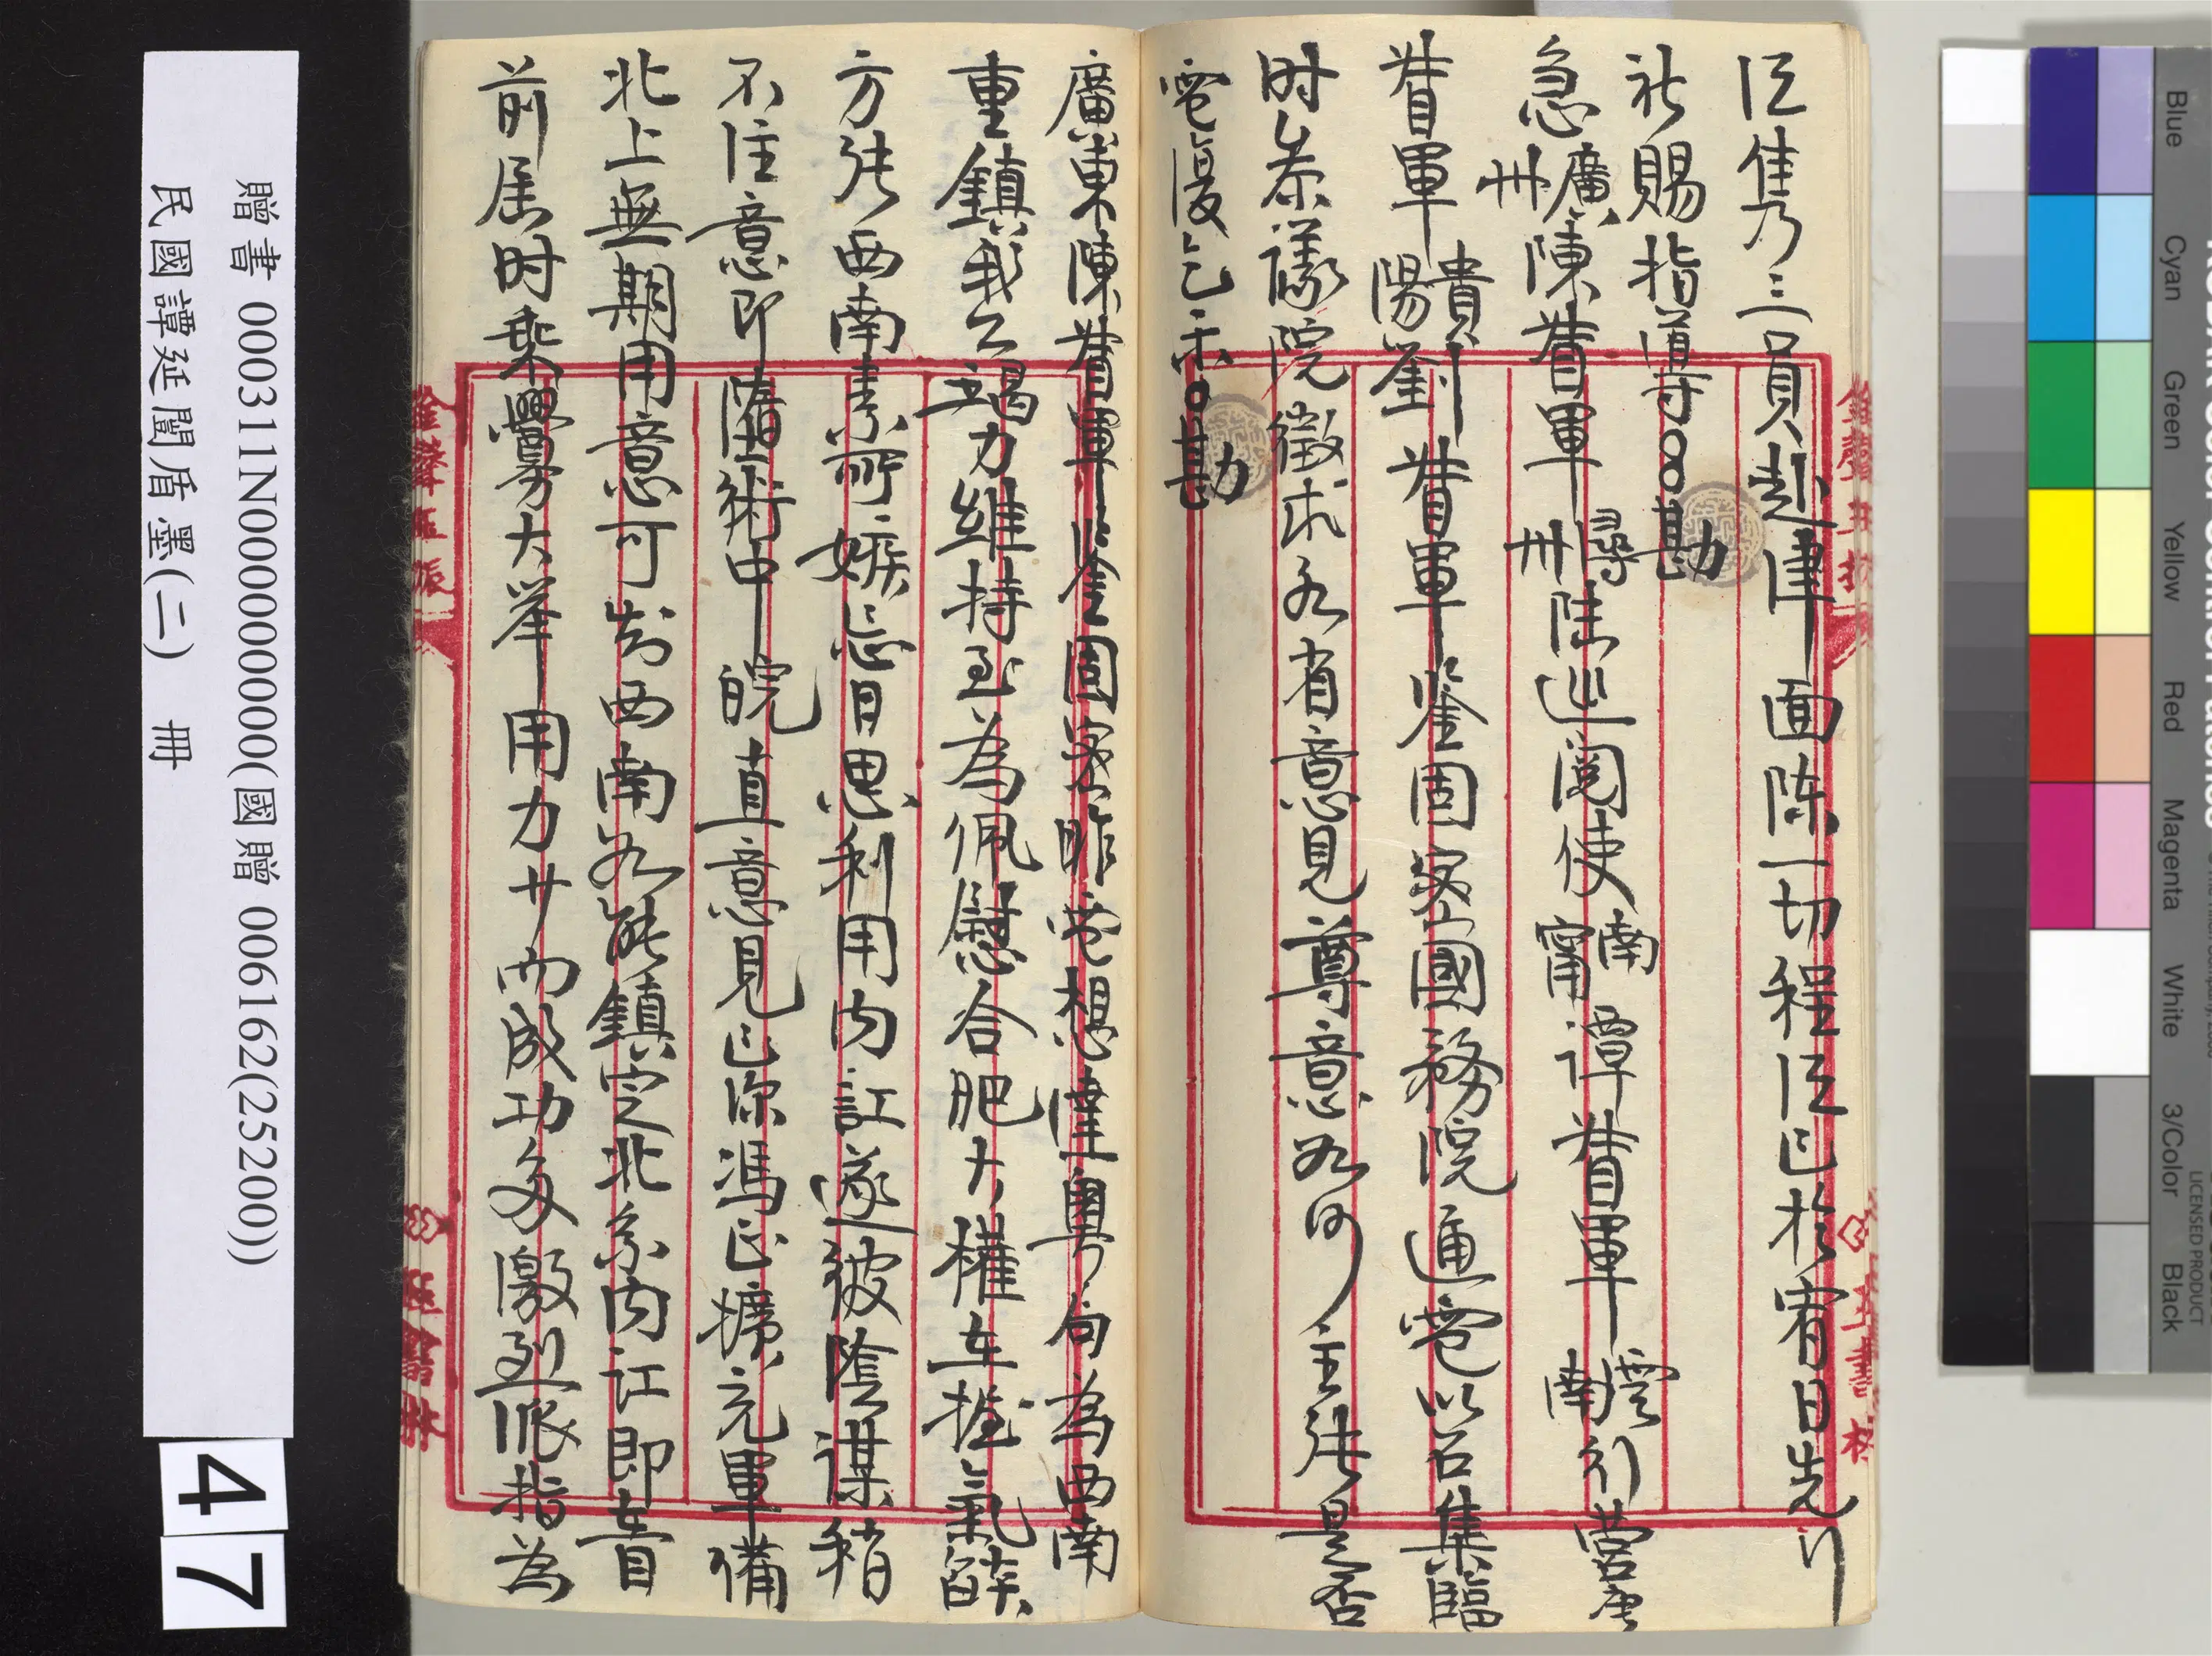 臣雋乃三員赴津面陳一切程臣已於宥日先行
祈賜指導○○勘
急廣州陳督軍尋州陸巡閱使南寧譚督軍雲南行營唐
督軍貴陽劉督軍鑒固密國務院通電以召集臨
時參議院徵求各省意見尊意如何主張是否
電復乞示○勘
廣東陳督軍鑒固密昨電想達粵局為西南
重鎮我公竭力維持至為佩慰合肥大權在握氣餒
方張西南素所嫉忌日思利用內訌遂彼陰謀稍
不注意即墮術中皖直意見已深馮正擴充軍備
北上無期用意可知西南如能鎮定北系內訌即在目
前屆時乘釁大舉用力少而成功多激烈派指為
贈書 000311N000000000000(國贈 006162(25200))
民國譚延闓盾墨(二) 冊
47
Blue
Cyan
Green
Yellow
Red
Magenta
White
3/Color
Black
LICENSED PRODUCT